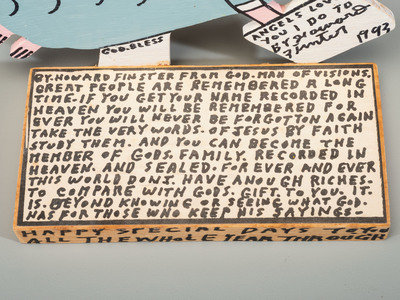 ANGELS LOVE
YOU I DO TO
BY HOWARD
FINSTER 1993
GOD.BLESS
BY.HOWARD FINSTER FROM GOD.MAN OF VISIONS.
GREAT PEOPLE ARE REMEMBERED A LONG
TIME.IF YOU GET YOUR NAME RECORDED IN
HEAVEN YOU WILL BE REMEMBERED FOR
EVER YOU WILL NEVER BE FORGOTTON AGAIN
TAKE THE VERY WORDS. OF JESUS BY FAITH
STUDY THEM. AND YOU CAN BECOME THE
MEMBER OF GODS. FAMILY. RECORDED IN
HEAVEN. AND SEALED. FOREVER AND EVER
THIS WORLD DONT. HAVE ENOUGH RICHES.
TO COMPARE WITH GODS. GIFT TO YOU. IT.
IS. BEYOND KNOWING OR SEEING WHAT GOD.
HAS FOR THOSE WHO KEEP HIS SAYINGS.
HAPPY SPECIAL DAYS TO YOU
ALL THE WHOLE YEAR THROUGH